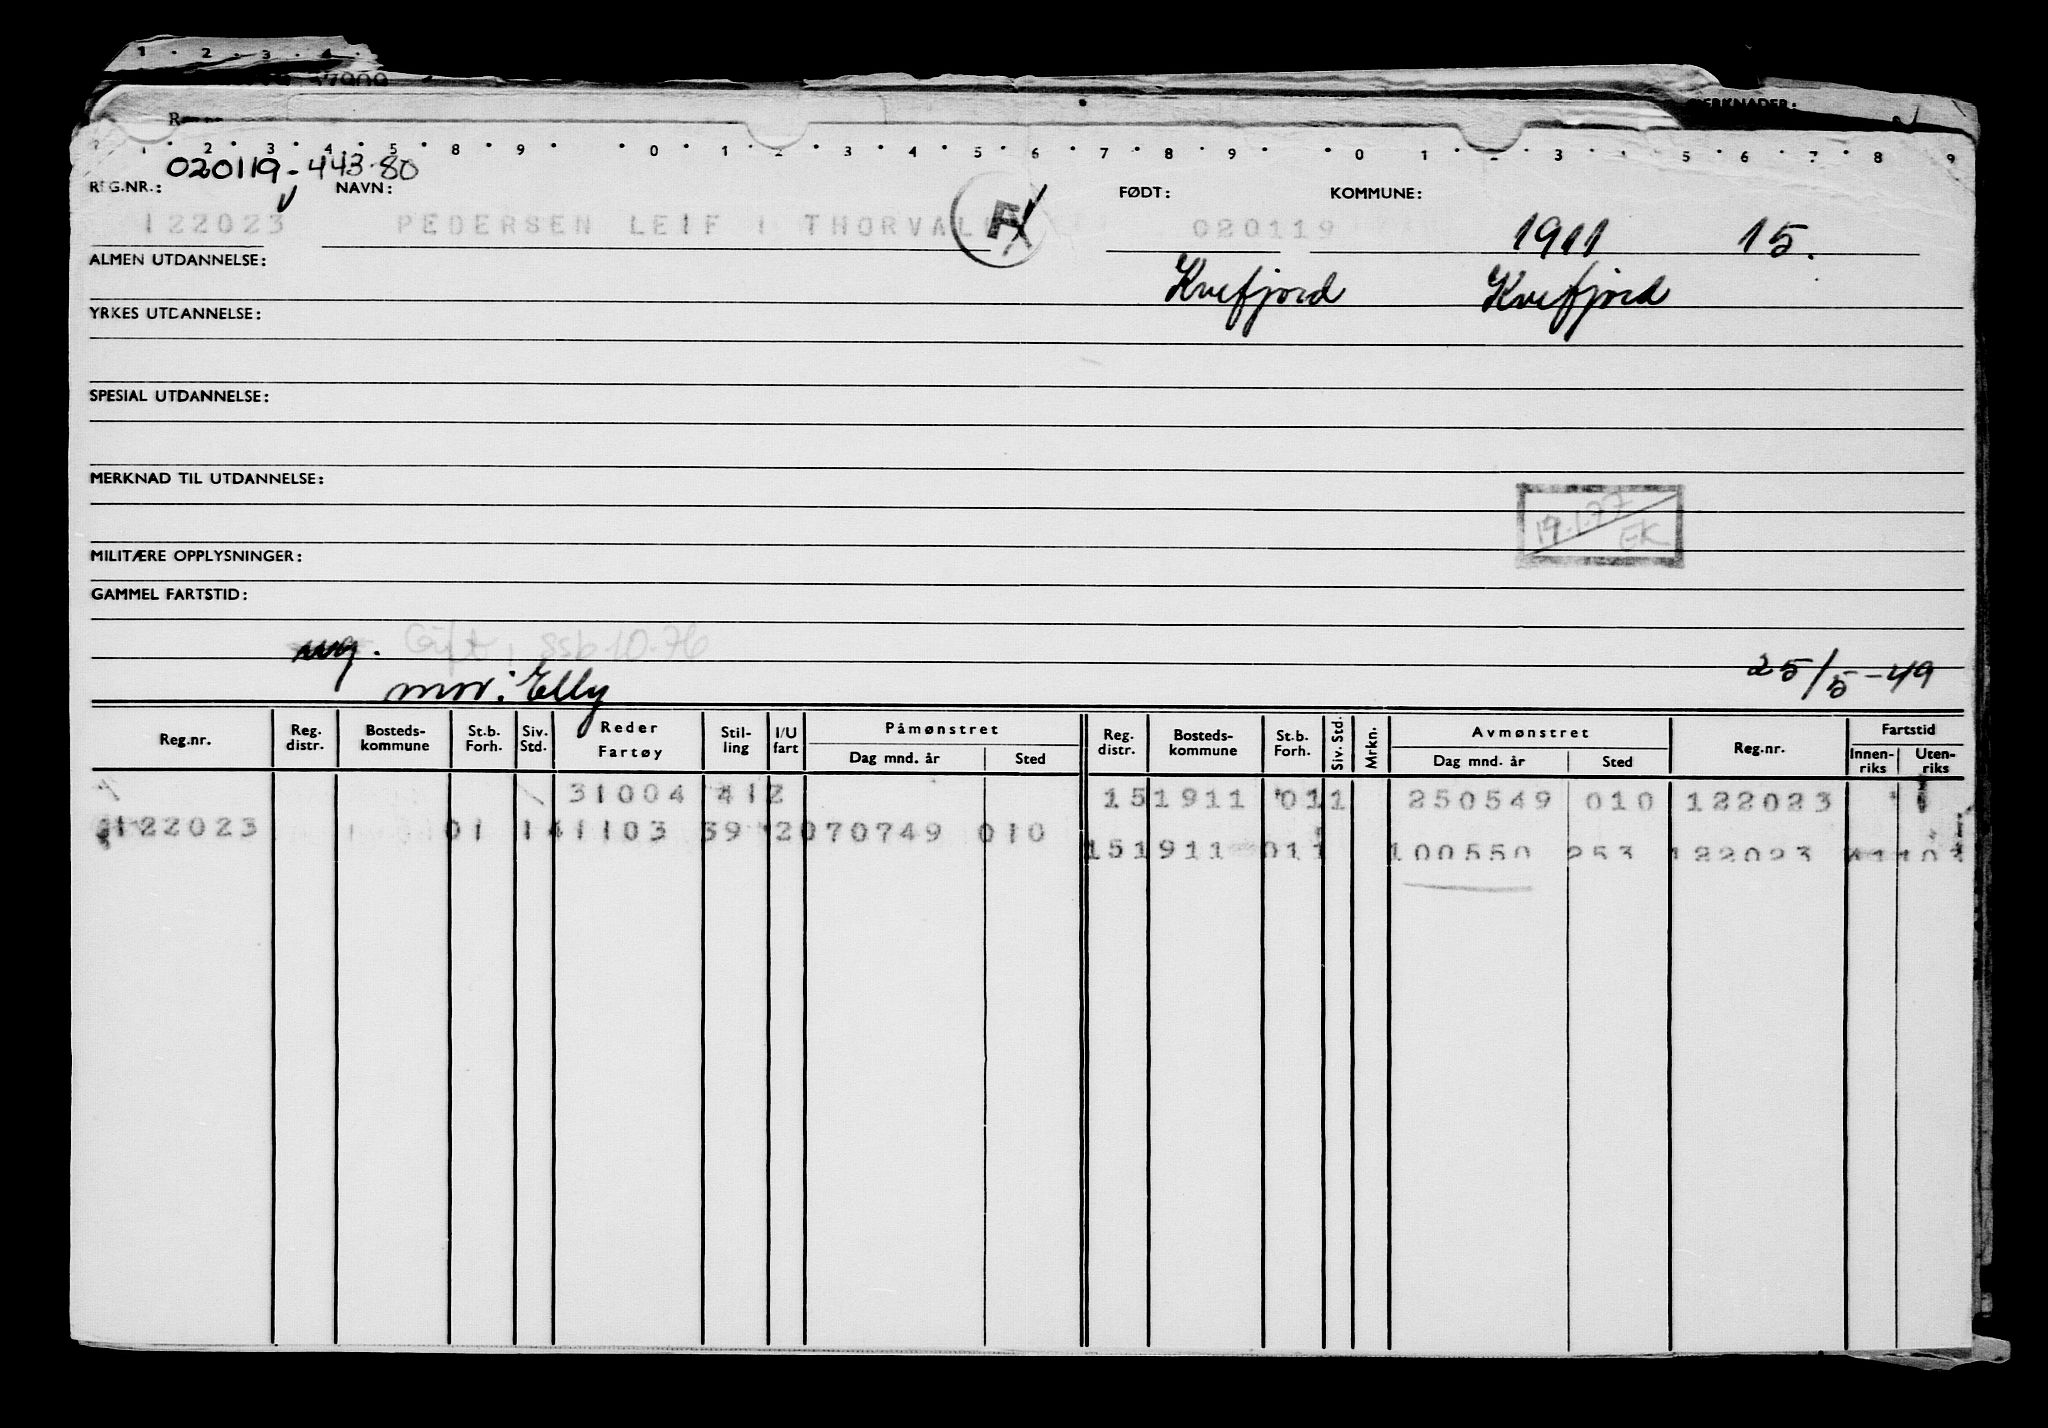 1 2 3 4
37909
MERKNADER:
1 2 3 4 5 8 9 0 1 2 3 4 5 6 7 8 9 0 1 2 3 4 5 6 7 8 9
020119-443.80
REG.NR.: NAVN: FØDT: KOMMUNE:
122023 PEDERSEN LEIF I THORVAL 020119 1911 15.
ALMEN UTDANNELSE: Kvefjord Kvefjord
YRKES UTDANNELSE:
SPESIAL UTDANNELSE:
MERKNAD TIL UTDANNELSE:
19.1.77
EK
MILITÆRE OPPLYSNINGER:
GAMMEL FARTSTID:
ug. Gift, ssb 10.76
mor: Elly 25/5-49
Reg.nr. Reg. distr. Bosteds-kommune St.b. Forh. Siv. Std. Reder Fartøy Stil-ling I/U fart Påmønstret Dag mnd. år Sted Reg. distr. Bosteds-kommune St.b. Forh. Siv. Std. Mrkn. Avmønstret Dag mnd. år Sted Reg.nr. Fartstid Innen-riks Uten-riks
31004 412 151911 011 250549 010 122023
122023 01 141103 59 2070749 010
151911 011 100550 253 122023 41103